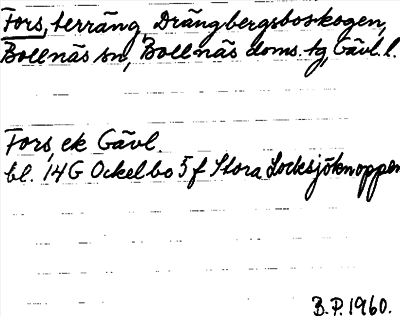 Fors, terräng, Drängbergsboskogen,
Bollnäs sn, Bollnäs doms. tg, Gävl. l.
Fors, ek Gävl.
bl. 14G Ockelbo 5f Stora Locksjöknoppen
B.P. 1960.